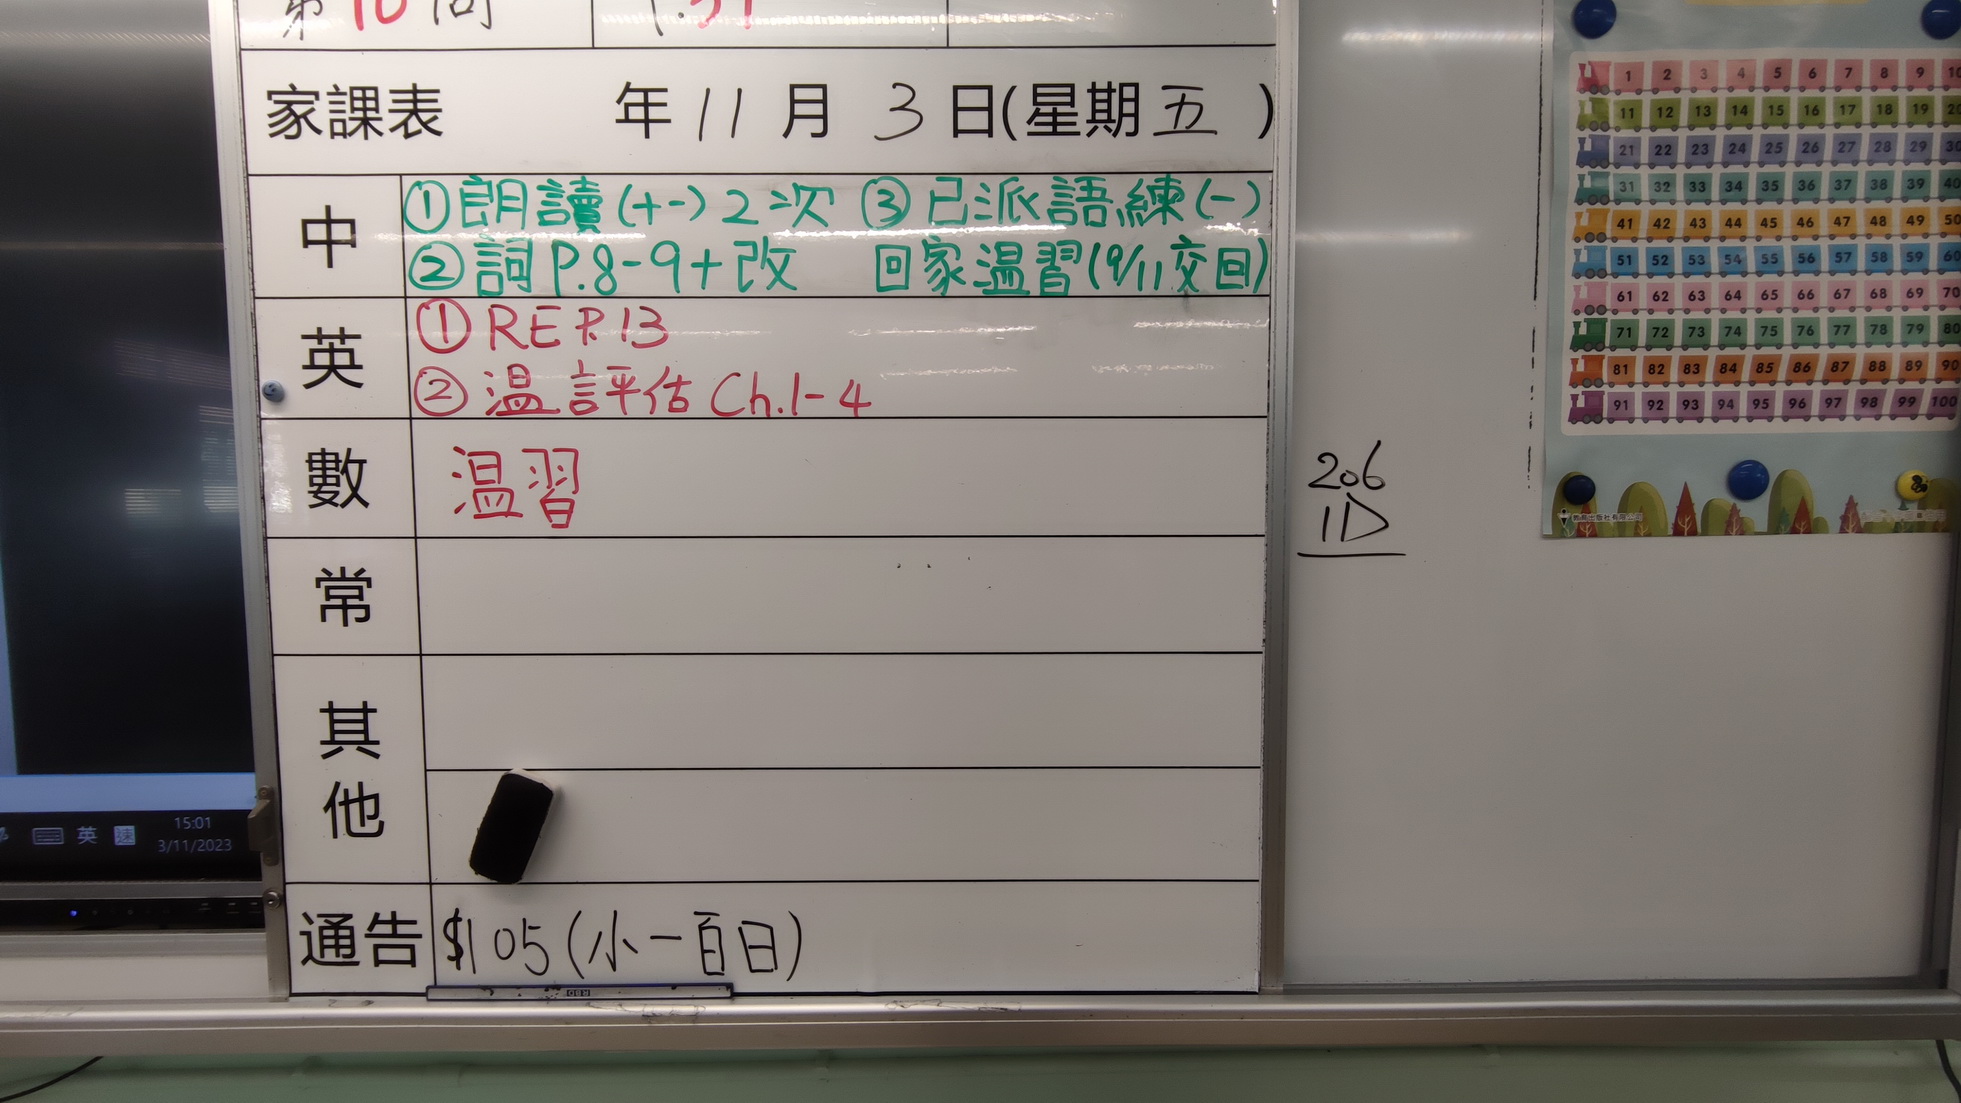 第10周
1.31
家課表 年11月3日(星期五)
中
①朗讀(十一)2次 ③已派語練(一)
②詞P.8-9+改 回家温習(9/11交回)
英
①RE P.13
②温評估 Ch.1-4
數
温習
常
其他
通告
$105(小一百日)
206
1D
15:01
英
速
3/11/2023
1 2 3 4 5 6 7 8 9 10
11 12 13 14 15 16 17 18 19 20
21 22 23 24 25 26 27 28 29 30
31 32 33 34 35 36 37 38 39 40
41 42 43 44 45 46 47 48 49 50
51 52 53 54 55 56 57 58 59 60
61 62 63 64 65 66 67 68 69 70
71 72 73 74 75 76 77 78 79 80
81 82 83 84 85 86 87 88 89 90
91 92 93 94 95 96 97 98 99 100